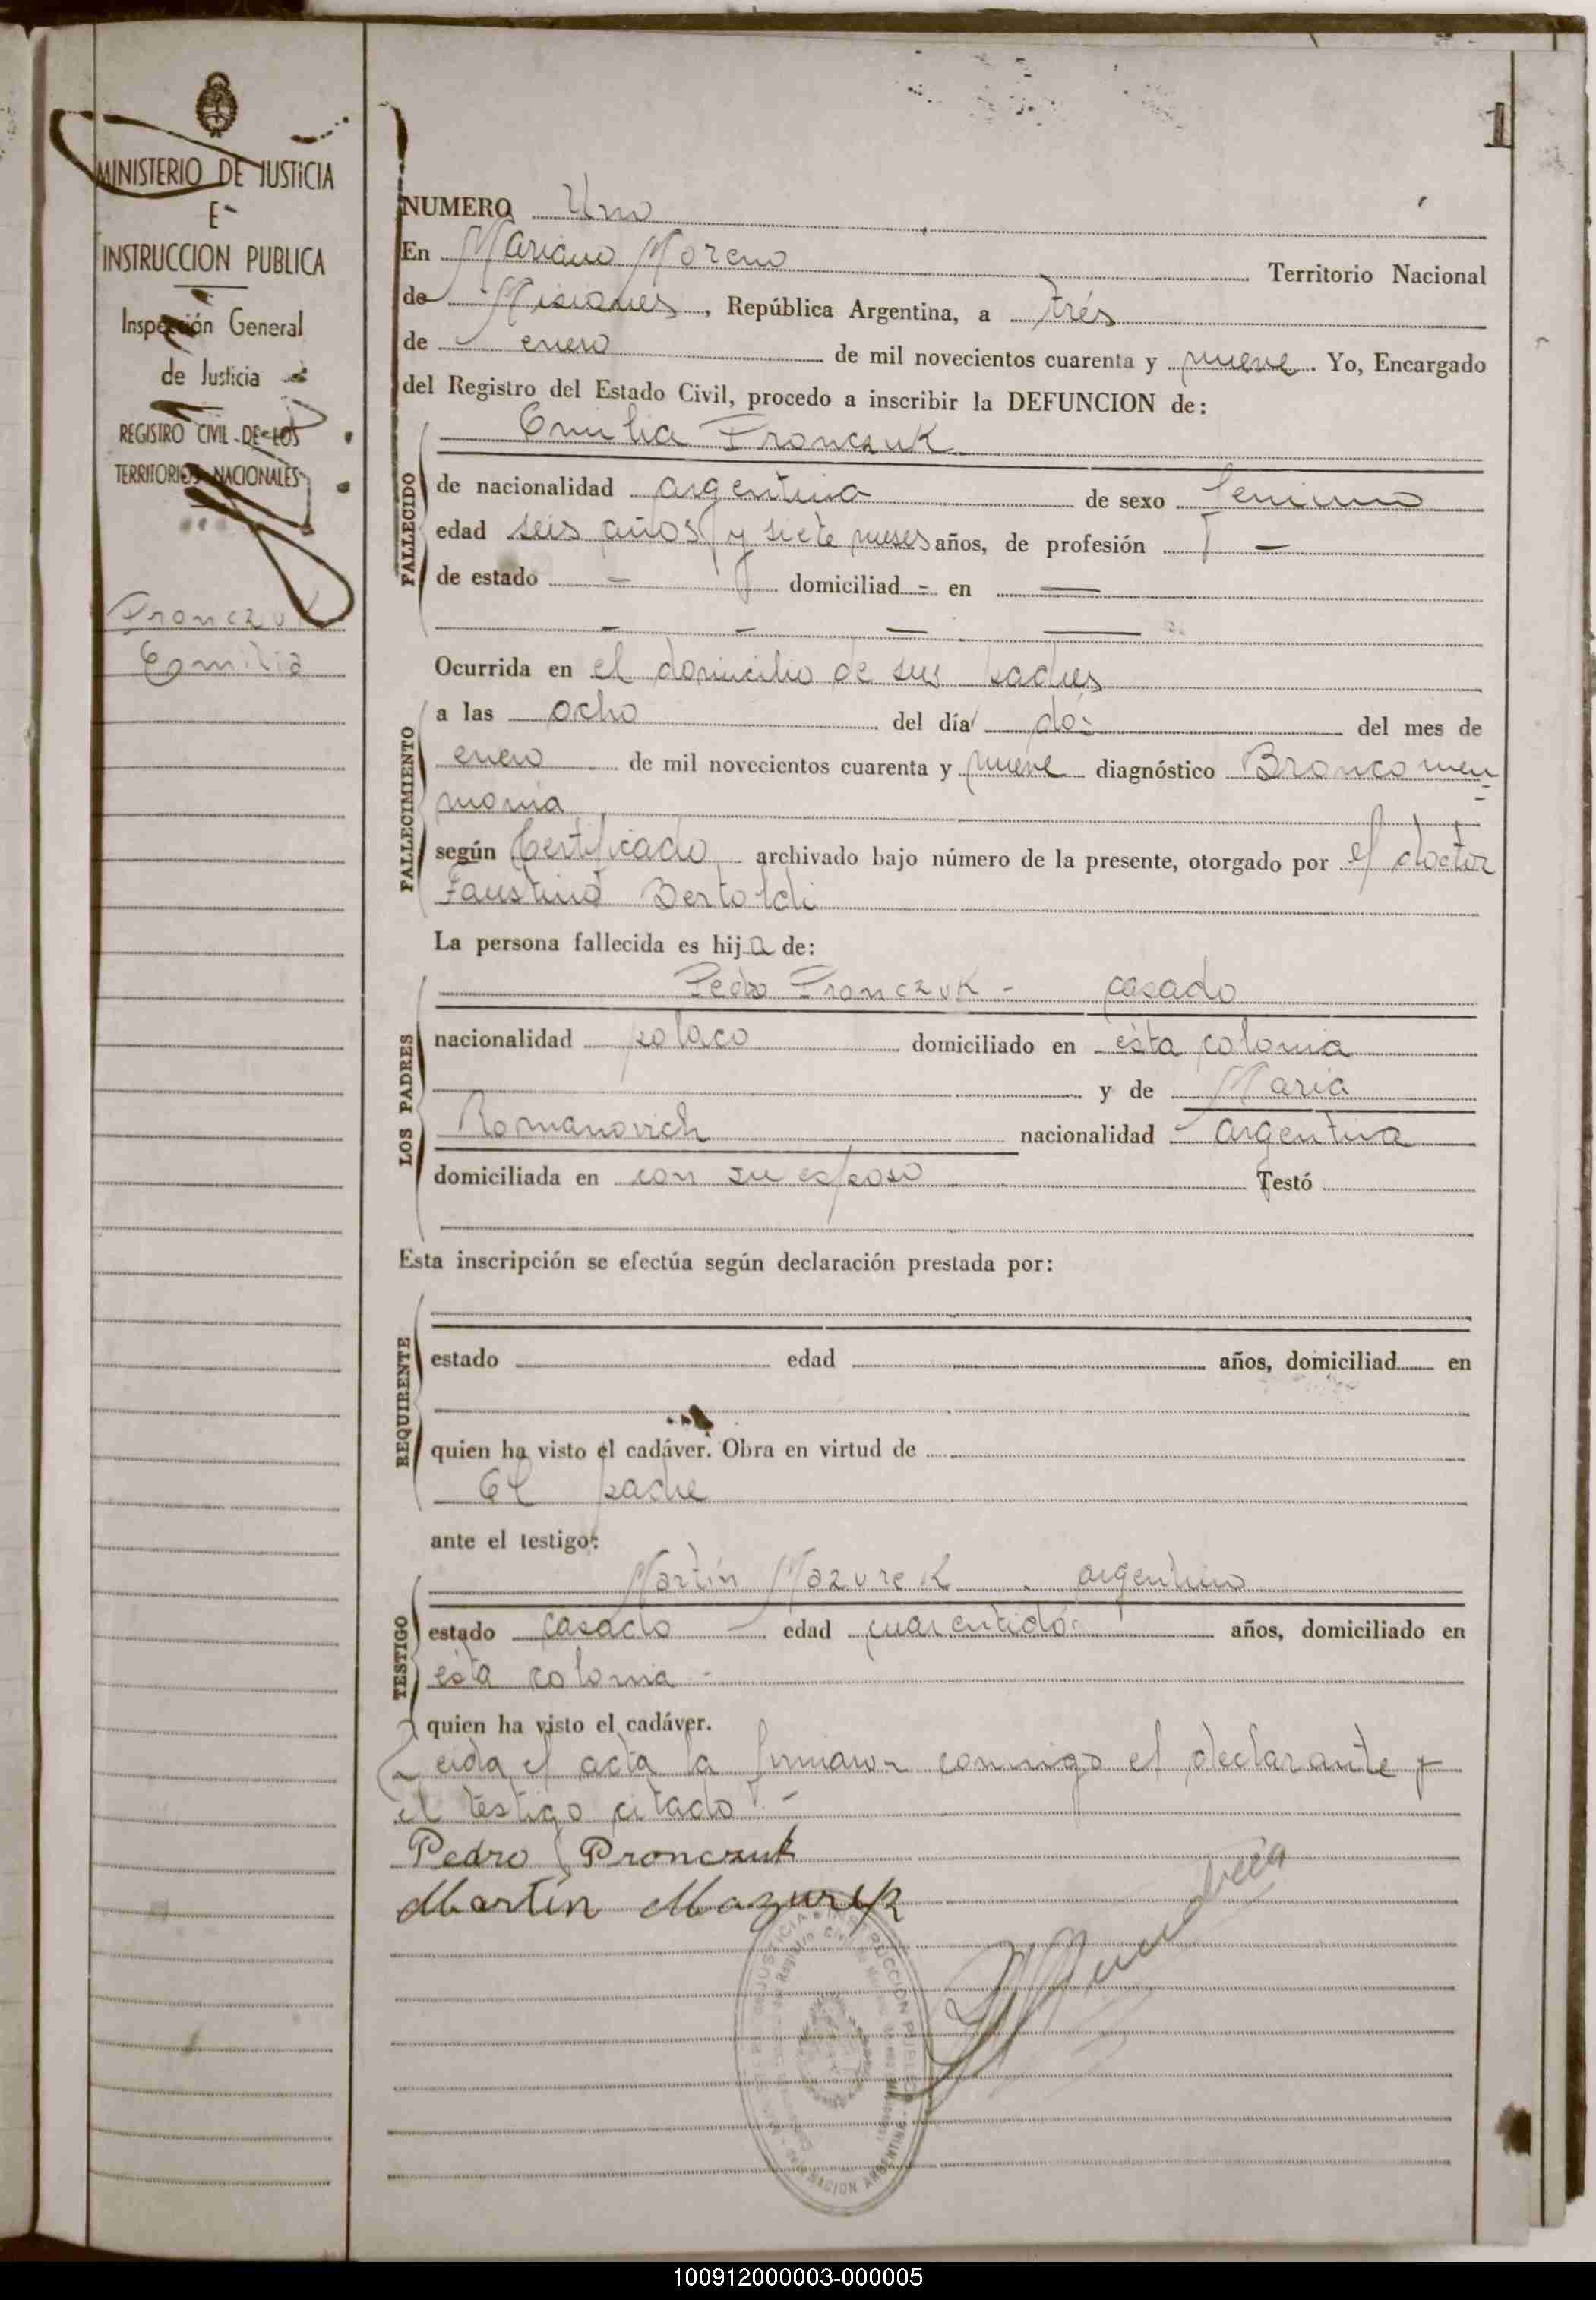 MINISTERIO DE JUSTICIA
E
INSTRUCCION PUBLICA
Inspección General
de Justicia
REGISTRO CIVIL DE LOS
TERRITORIOS NACIONALES
Pronczuk
Emilia
1
NUMERO Uno
En Mariano Moreno Territorio Nacional
de Misiones, República Argentina, a trés
de enero de mil novecientos cuarenta y nueve. Yo, Encargado
del Registro del Estado Civil, procedo a inscribir la DEFUNCION de:
Emilia Pronczuk
FALLECIDO
de nacionalidad argentina de sexo femenino
edad seis años y siete meses años, de profesión —
de estado — domiciliad - en —
— — — —
Ocurrida en el domicilio de sus padres
FALLECIMIENTO
a las ocho del día dos del mes de
enero de mil novecientos cuarenta y nueve diagnóstico Bronconeu=
monia
según Certificado archivado bajo número de la presente, otorgado por el doctor
Faustino Bertoldi
La persona fallecida es hija de:
LOS PADRES
Pedro Pronczuk - casado
nacionalidad polaco domiciliado en ésta colonia
y de Maria
Romanovich nacionalidad argentina
domiciliada en con su esposo Testó
Esta inscripción se efectúa según declaración prestada por:
REQUIRENTE
estado edad años, domiciliad en
quien ha visto el cadáver. Obra en virtud de
El padre
ante el testigo:
TESTIGO
Martín Mazurek argentino
estado casado edad cuarentidós años, domiciliado en
ésta colonia -
quien ha visto el cadáver.
Leida el acta la firmaron conmigo el declarante y
el testigo citado.-
Pedro Pronczuk
Martín Mazurek
JUSTICIA INSTRUCCION PUBLICA
NACION ARGENTINA
100912000003-000005